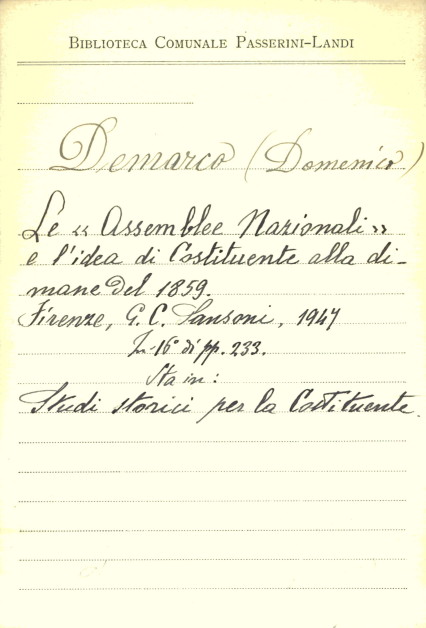 BIBLIOTECA COMUNALE PASSERINI-LANDI
Demarco (Domenico)
Le « Assemblee Nazionali »
e l'idea di Costituente alla di-
mane del 1859.
Firenze, G. C. Sansoni, 1947
In-16° di pp. 233.
Sta in:
Studi storici per la Costituente.